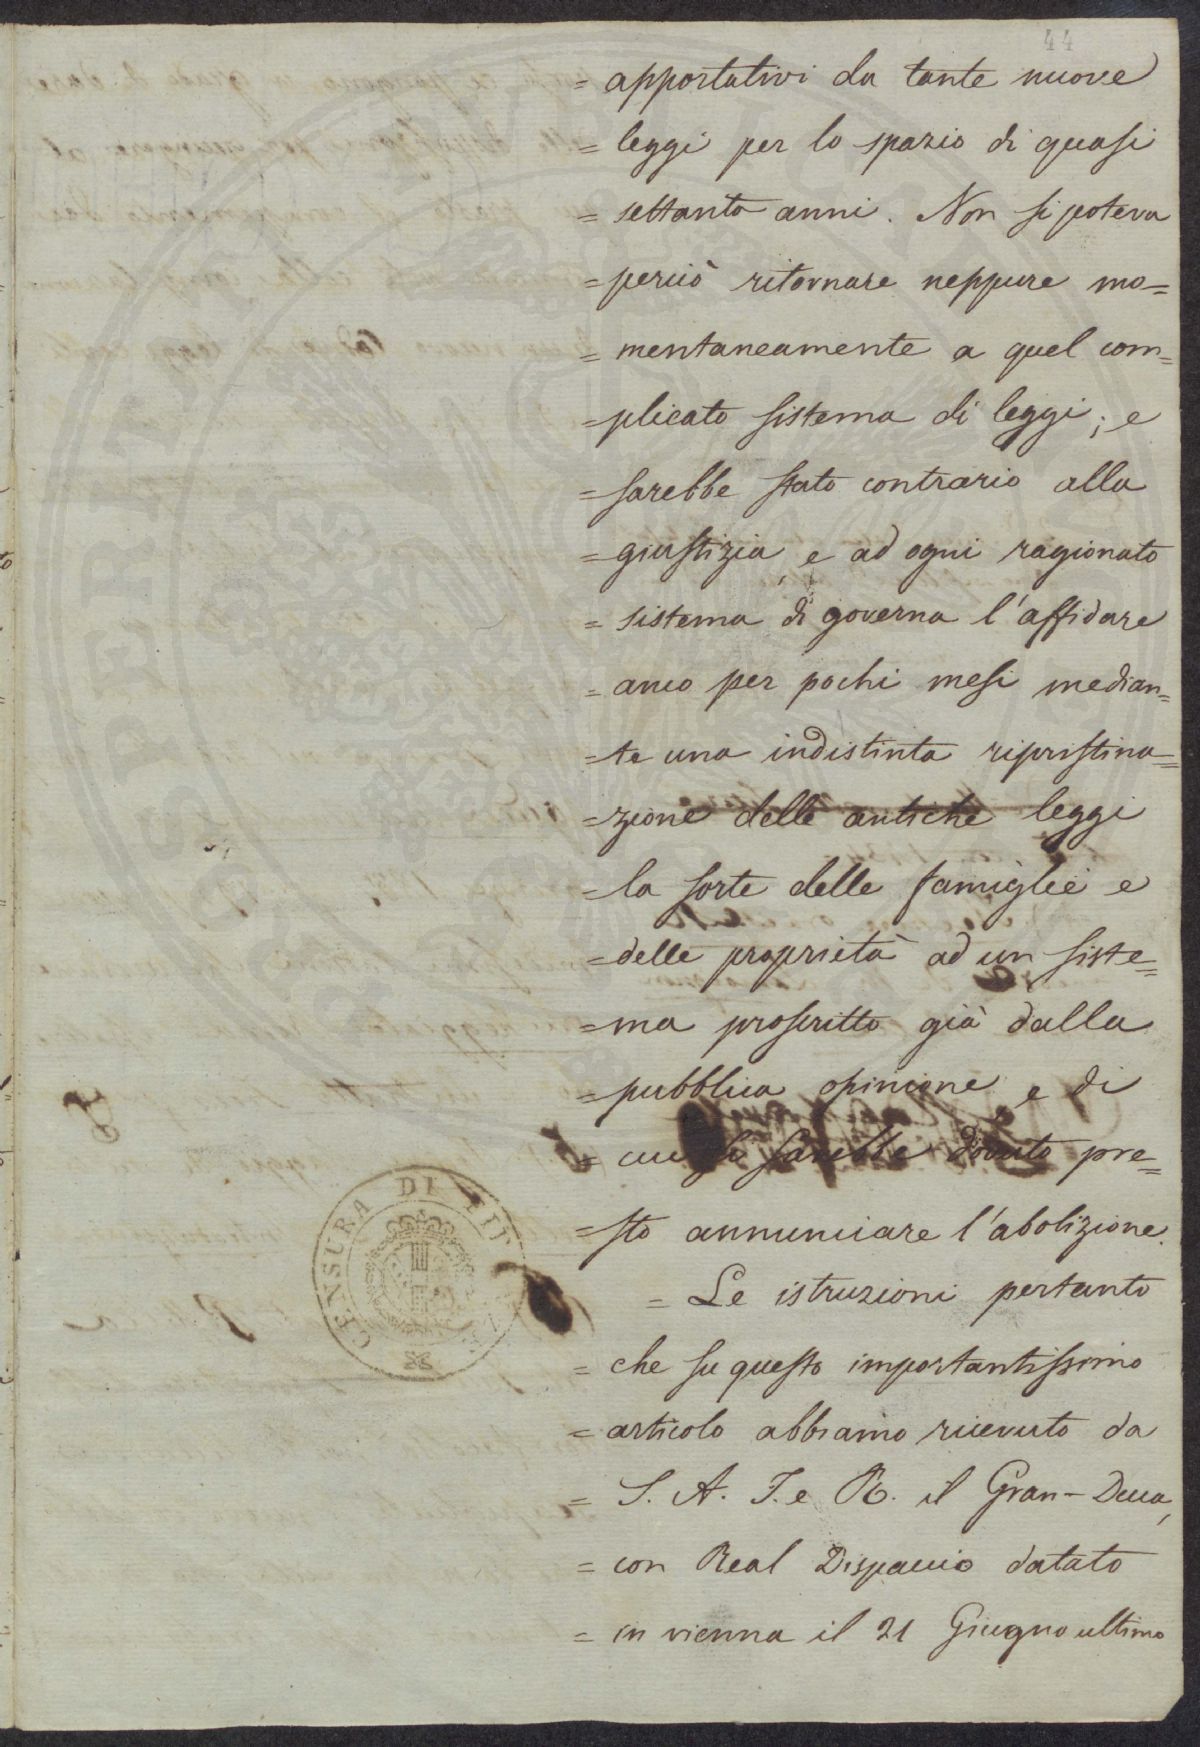 44
= apportativi da tante nuove
= leggi per lo spazio di quasi
= settanta anni. Non si poteva
= perciò ritornare neppure mo=
= mentaneamente a quel com=
= plicato sistema di leggi; e
= sarebbe stato contrario alla
= giustizia, e ad ogni ragionato
= sistema di governa l'affidare
= anco per pochi mesi median=
= te una indistinta ripristina=
= zione delle antiche leggi
= la sorte delle famiglie e
= delle proprietà ad un siste=
= ma proscritto già dalla
= pubblica opinione, e di
= cui si sarebbe dovuto pre=
= sto annunciare l'abolizione.
= Le istruzioni pertanto
= che su questo importantissimo
= articolo abbiamo ricevuto da
= S. A. I. e R. il Gran-Duca,
= con Real Dispaccio datato
= in vienna il 21 Giugno ultimo
CENSURA DI